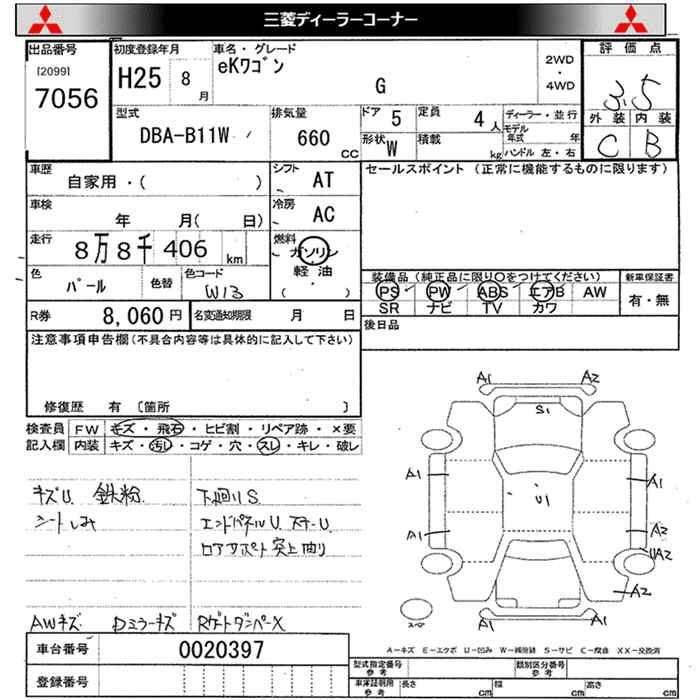 三菱ディーラーコーナー
出品番号
[2099]
7056
初度登録年月
H25 8 月
車名・グレード
eKワゴン
G
2WD
・
4WD
評価点
3.5
外装 内装
C B
型式
DBA-B11W
排気量
660 cc
ドア 5
定員 4 人
形状 W
積載 kg
ディーラー・並行
モデル年式 年
ハンドル 左・右
車歴
自家用・( )
シフト AT
車検 年 月( 日)
冷房 AC
走行 8万8千406 km
燃料 ガソリン
軽油
( ・ )
色 パール 色替
色コード W13
セールスポイント (正常に機能するものに限ります)
装備品 (純正品に限り○をつけてください)
PS PW ABS エアB AW
SR ナビ TV カワ
新車保証書
有・無
R券 8,060円
名変通知期限 月 日
後日品
注意事項申告欄(不具合内容等は具体的に記入して下さい)
修復歴 有 〔箇所 〕
検査員 FW キズ・飛石・ヒビ割・リペア跡・×要
記入欄 内装 キズ・汚し・コゲ・穴・スレ・キレ・破レ
キズU. 鉄粉 下廻りS
シートしみ エンドパネルU.ステーU.
ロアサポート突上曲り
AWキズ DミラーキズRゲートダンパーX
A1 A2
S1
A1 A1
U1
A1 A2
UA2
A2
A1 A1
スペア
A−キズ E−エクボ U−凹み W−補修跡 S−サビ C−腐食 XX−交換済
車台番号 0020397
登録番号
型式指定番号 参考
類別区分番号 参考
車庫証明用 参考 長さ cm 幅 cm 高さ cm